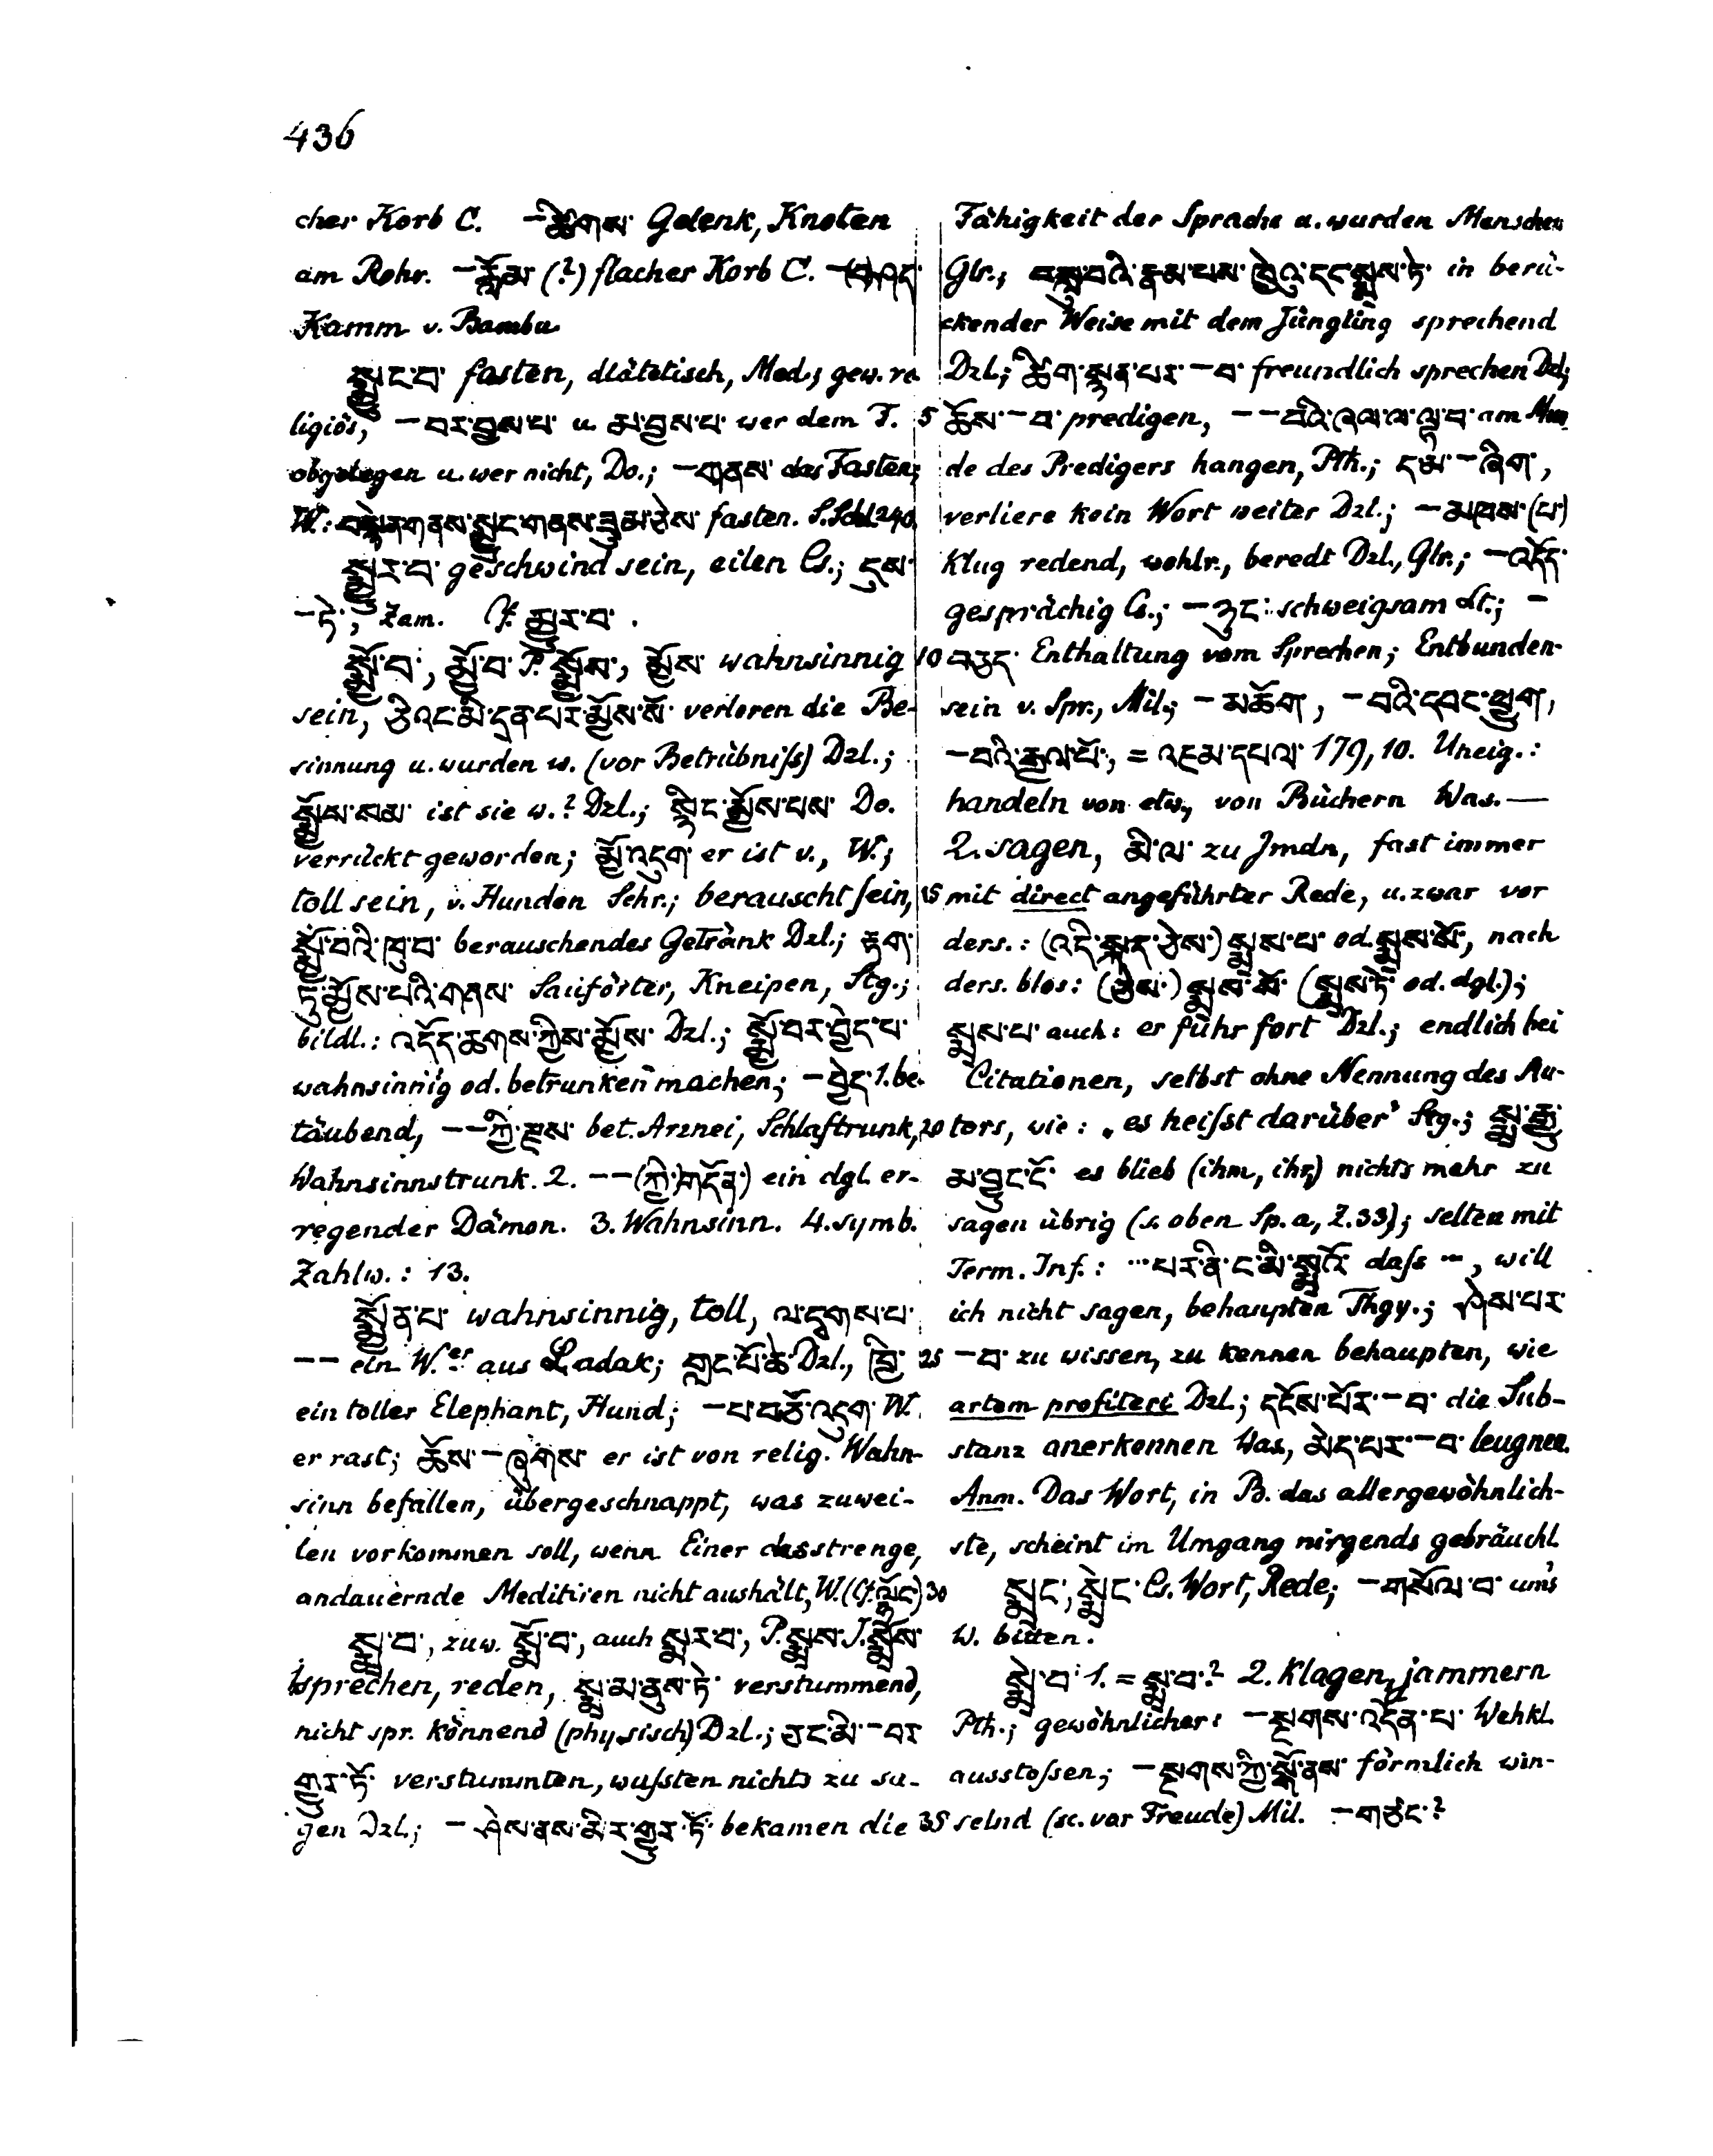 436
cher Korb C. –ཚིགས་ Gelenk, Knoten
am Rohr. – (?) flacher Korb C. –
Kamm v. Bambu
སྨྱུང་བ་ fasten, diätetisch, Med.; gew. re
ligiös, –བར་བྱས་པ་ u. མ་བྱས་པ་ wer dem F.
obgelegen u. wer nicht, Do.; –གནས་ das Fasten;
W.: བསྙེན་གནས་སྨྱུང་གནས་ fasten. S. Schl. 240.
སྨྱུར་བ་ geschwind sein, eilen Cs.; དུས་
–ཏེ་, Zam. Cf. མྱུར་བ་.
སྨྱོ་བ་, མྱོ་བ་ P. སྨྱོས་, མྱོས་ wahnsinnig
sein, ཅི་འང་མི་དྲན་པར་མྱོས་སོ་ verloren die Be-
sinnung u. wurden w. (vor Betrübniſs) Dzl.;
སྨྱོས་སམ་ ist sie w.? Dzl.; སྙིང་མྱོས་པས་ Do.
verrückt geworden; མྱོ་འདུག་ er ist v., W.;
toll sein, v. Hunden Schr.; berauscht ſein,
སྨྱོ་བའི་ཁུ་བ་ berauschendes Getränk Dzl.; རྟག་
ཏུ་མྱོས་པའི་གནས་ Sauförter, Kneipen, Stg.;
bildl.: འདོད་ཆགས་ཀྱིས་མྱོས་ Dzl.; སྨྱོ་བར་བྱེད་པ་
wahnsinnig od. betrunken machen; –བྱེད་ 1. be-
täubend, ––ཀྱི་རྫས་ bet. Arznei, Schlaftrunk,
Wahnsinnstrunk. 2. ––(ཀྱི་གདོན་) ein dgl. er-
regender Dämon. 3. Wahnsinn. 4. symb.
Zahlw.: 13.
སྨྱོན་པ་ wahnsinnig, toll, ལ་དྭགས་པ་
–– ein W.er aus Ladak; གླང་པོ་ཆེ་ Dzl., ཁྱི་
ein toller Elephant, Hund; –པ་བཅོ་འདུག་ W.
er rast; ཆོས་–ཞུགས་ er ist von relig. Wahn-
sinn befallen, übergeschnappt, was zuwei-
len vorkommen soll, wenn Einer das strenge,
andauernde Meditiren nicht aushält, W. (Cf. )
སྨྲ་བ་, zuw. སྨྲོ་བ་, auch སྨྲར་བ་, P. སྨྲས་ J. སྨྲོས་
1. sprechen, reden, སྨྲ་མ་ནུས་ཏེ་ verstummend,
nicht spr. könnend (physisch) Dzl.; ཅང་མི་–བར་
གྱུར་ཏོ་ verstummten, wuſsten nichts zu sa-
gen Dzl.; –ཤེས་ནས་མིར་གྱུར་ཏོ་ bekamen die
Fähigkeit der Sprache u. wurden Menschen
Glr.; བསླུ་བའི་རྣམ་པས་ཁྱེའུ་དང་སྨྲས་ཏེ་ in berü-
ckender Weise mit dem Jüngling sprechend
Dzl.; ཚིག་སྙན་པར་–བ་ freundlich sprechen Dzl;
5 ཆོས་–བ་ predigen, ––བའི་ཞལ་ལ་ལྟ་བ་ am Mun
de des Predigers hangen, Pth.; ད་མ་–ཞིག,
verliere kein Wort weiter Dzl.; –མཁས་(པ་)
klug redend, wohlr., beredt Dzl., Glr.; –འདོད་
gesprächig Cs.; –ཉུང་ : schweigsam dt.; –
10 བཅད་ Enthaltung vom Sprechen; Entbunden-
sein v. Spr., Mil.; –མཆོག, –བའི་དབང་ཕྱུག,
–བའི་རྒྱལ་པོ་, = འཇམ་དཔལ་ 179, 10. Uneig.:
handeln von etw., von Büchern Was.—
2. sagen, མི་ལ་ zu Jmdn, fast immer
15 mit direct angeführter Rede, u. zwar vor
ders.: (འདི་སྐད་ཅེས་) སྨྲས་པ་ od. སྨྲས་སོ་, nach
ders. blos: (ཅེས་) སྨྲས་སོ་ (སྨྲས་ཏེ་ od. dgl.);
སྨྲས་པ་ auch: er fuhr fort Dzl.; endlich bei
Citationen, selbst ohne Nennung des Au-
20 tors, wie: „es heiſst darüber“ Stg.; སྨྲ་རྒྱུ་
མ་བྱུང་ངོ་ es blieb (ihm, ihr,) nichts mehr zu
sagen übrig (s. oben Sp. a, Z. 33); selten mit
Term. Inf.: ···པར་ནི་ང་མི་སྨྲའོ་ daſs ···, will
ich nicht sagen, behaupten Thgy.; ཤེས་པར་
25 –བ་ zu wissen, zu kennen behaupten, wie
artem profiteri Dzl.; དངོས་པོར་–བ་ die Sub-
stanz anerkennen Was, མེད་པར་–བ་ leugnen.
Anm. Das Wort, in B. das allergewöhnlich-
ste, scheint im Umgang nirgends gebräuchl.
30 སྨྲང་, སྨྲེང་ Cs. Wort, Rede; –གསོལ་བ་ um's
W. bitten.
སྨྲེ་བ་ 1. = སྨྲ་བ་? 2. klagen, jammern
Pth.; gewöhnlicher: –སྔགས་འདོན་པ་ Wehkl.
ausstoſsen; –སྔགས་ཀྱི་སྒོ་ནས་ förmlich win-
35 selnd (sc. vor Freude) Mil. –གཅང་?